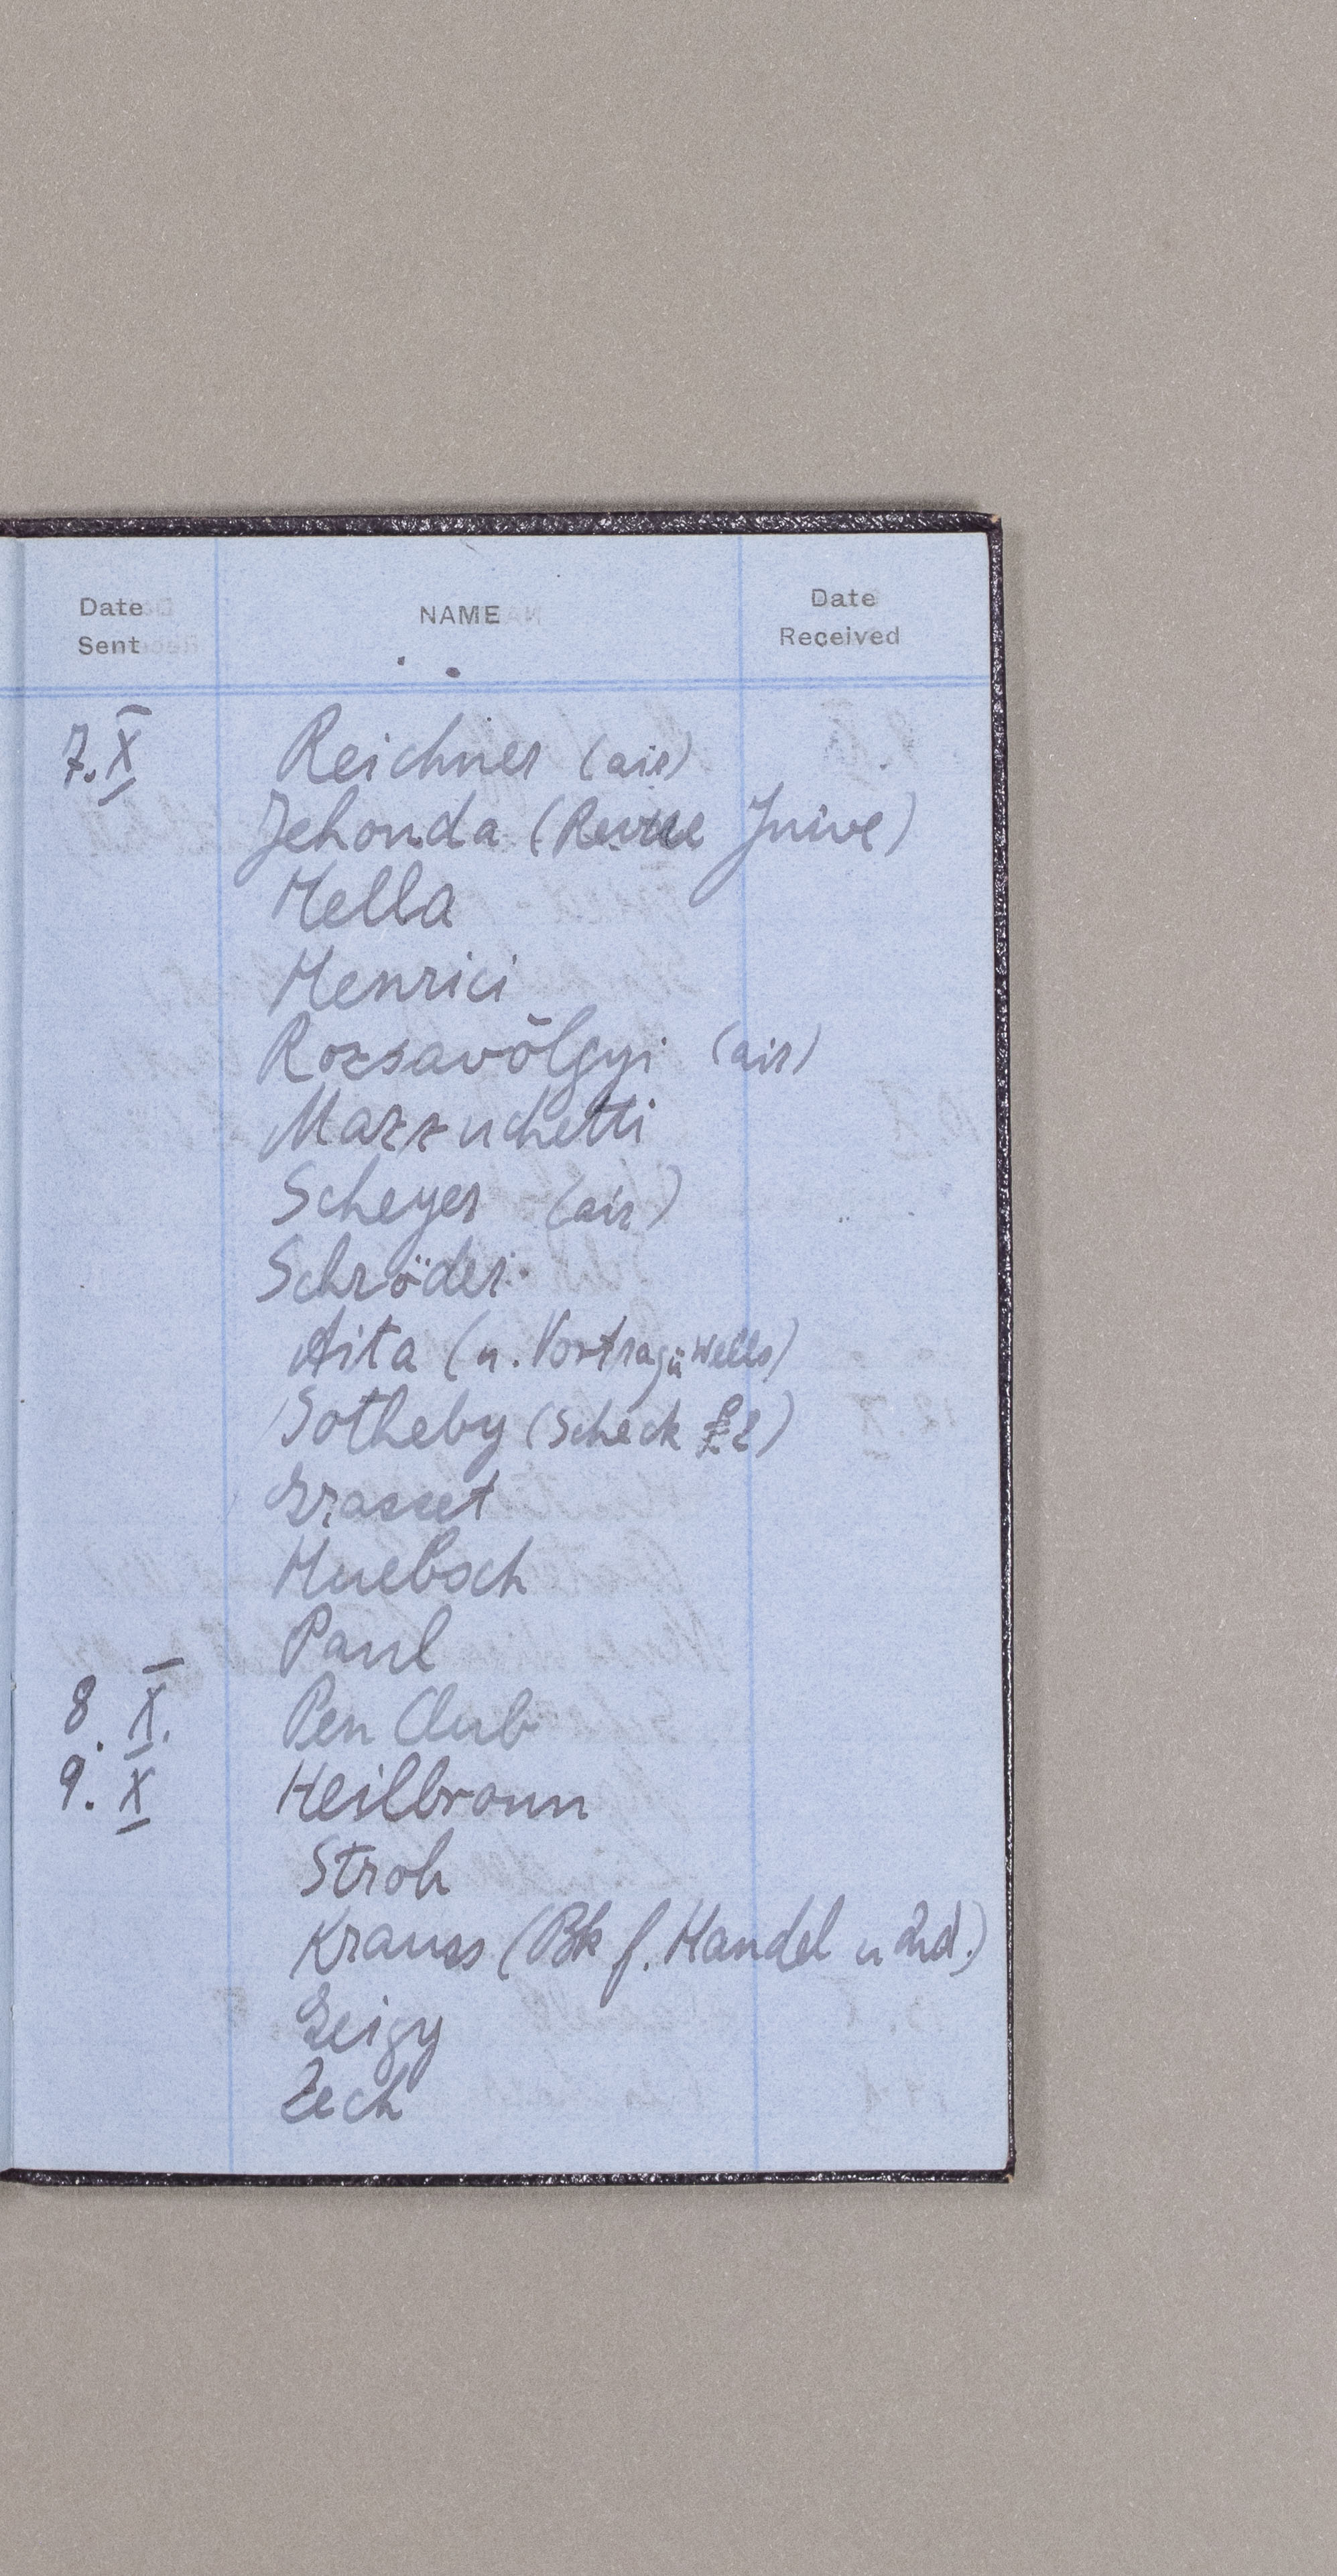 Date Sent NAME Date Received
7. X Reichner (air)
Jehouda (Revue Juive)
Hella
Henrici
Rozsavölgyi (air)
Mazzuchetti
Scheyer (air)
Schröder
Aita (u. Vortrag ü Wells)
Sotheby (Scheck £2)
Grasset
Huebsch
Paul
8. X. Pen Club
9. X Heilbronn
Stroh
Krauss (Bk f. Handel u Ind.)
Geigy
Zech